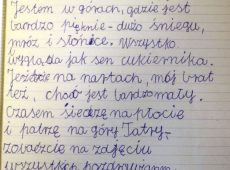 Jestem w górach, gdzie jest
bardzo pięknie - dużo śniegu,
mróz i słońce. Wszystko
wygląda jak sen cukiernika.
Jeżdżę na nartach, mój brat
też, choć jest bardzo mały.
Czasem siedzę na płocie
i patrzę na góry Tatry,
zobaczcie na zdjęciu
wszystkich pozdrawiam